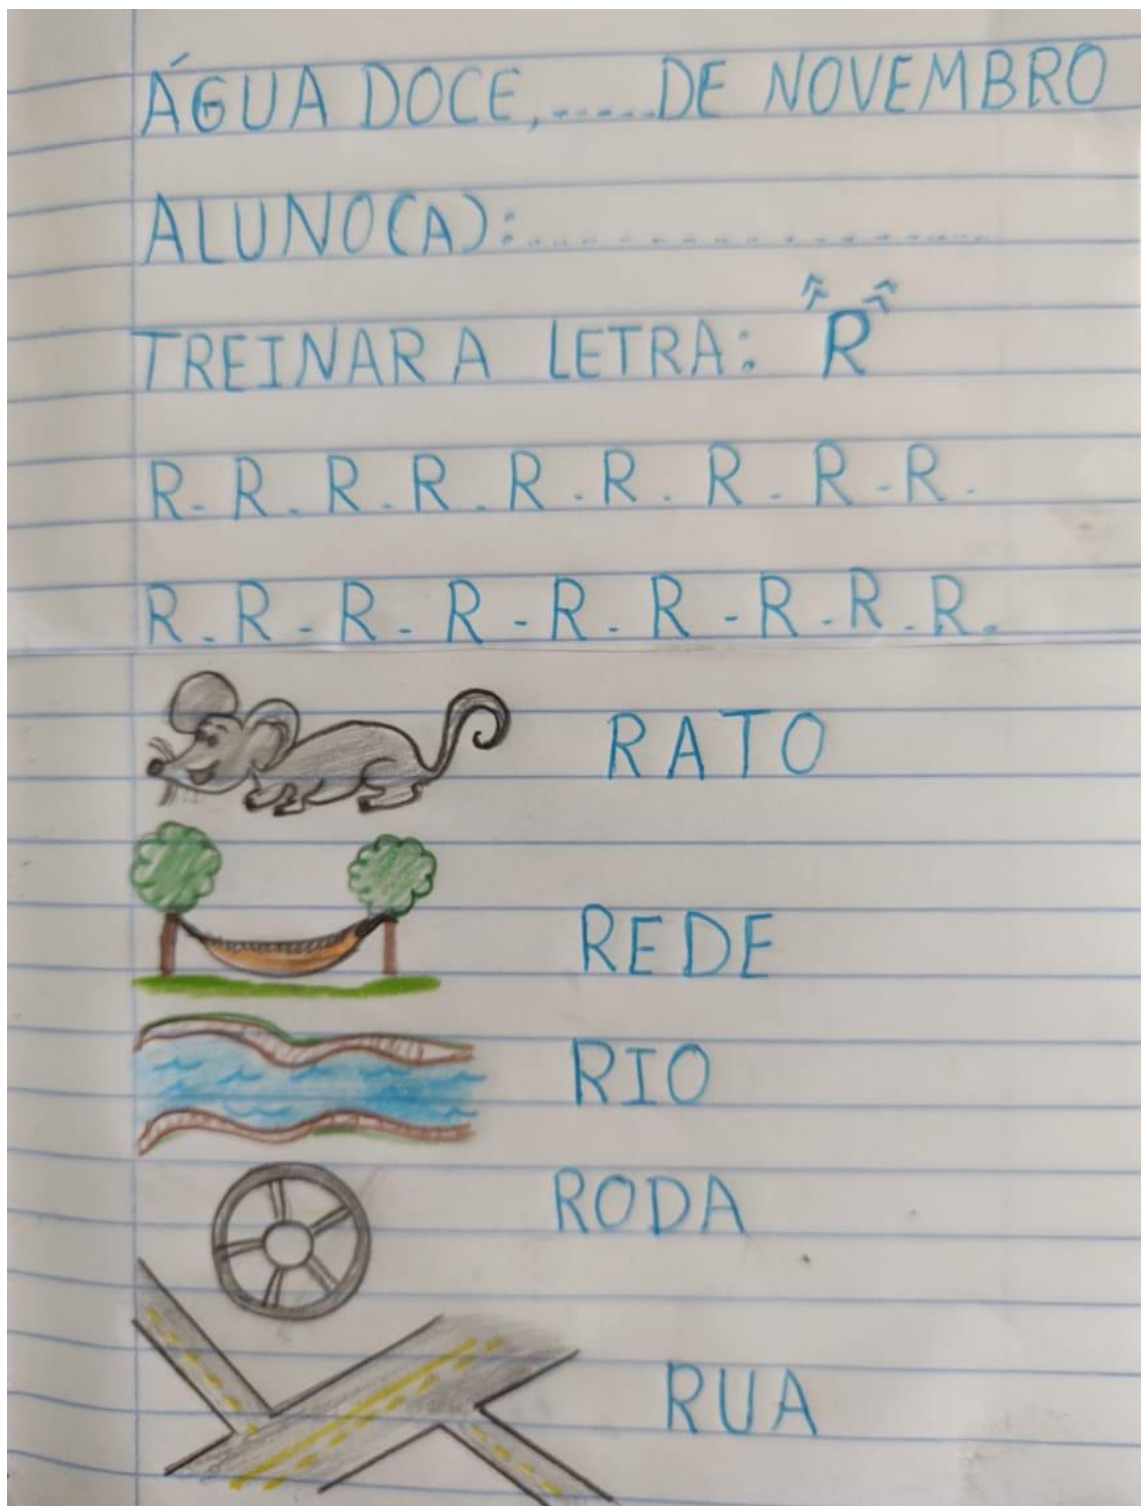 ÁGUA DOCE,.....DE NOVEMBRO
ALUNO(A):....................
TREINAR A LETRA: R
R. R. R. R. R. R. R. R. R.
R. R. R. R. R. R. R. R. R.
RATO
REDE
RIO
RODA
RUA